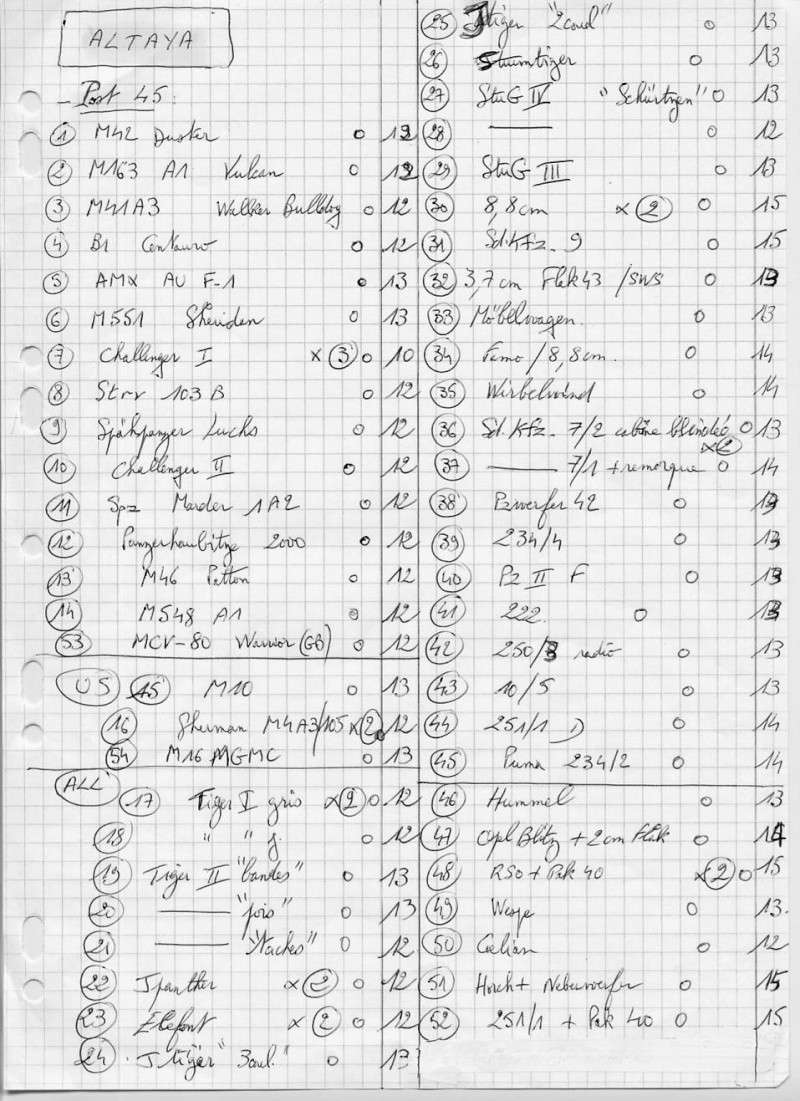 ALTAYA
- Post 45.
1 M42 Duster o 12
2 M163 A1 Vulcan o 12
3 M41A3 Walker Bulldog o 12
4 B1 Centauro o 12
5 AMX AU F-1 o 13
6 M551 Sheridan o 13
7 Challenger I x 3 o 10
8 Strv 103 B o 12
9 Spähpanzer Luchs o 12
10 Challenger II o 12
11 Spz Marder 1A2 o 12
12 Panzerhaubitze 2000 o 12
13 M46 Patton o 12
14 M548 A1 o 12
53 MCV-80 Warrior (GB) o 12
US 15 M10 o 13
16 Sherman M4A3/105 x 2 o 12
54 M16 MGMC o 13
ALL
17 Tiger I gris x 2 o 12
18 " " j. o 12
19 Tiger II "bandes" o 13
20 —— "pois" o 13
21 —— "taches" o 12
22 Jpanther x 2 o 12
23 Elefant x 2 o 12
24 . J tiger "3coul." o 13
25 Jtiger "2coul" o 13
26 Sturmtiger o 13
27 StuG IV "Schürtzen" o 13
28 —— o 12
29 StuG III o 13
30 8,8cm x 2 o 15
31 Sd.Kfz. 9 o 15
32 3,7cm Flak 43 /SWS o 13
33 Möbelwagen. o 13
34 Famo / 8,8cm. o 14
35 Wirbelwind o 14
36 Sd.Kfz. 7/2 cabine blindée o 13
x 2
37 —— 7/1 + remorque o 14
38 Pzwerfer 42 o 13
39 234/4 o 13
40 Pz II F o 13
41 222. o 13
42 250/3 radio o 13
43 10/5 o 13
44 251/1 D o 14
45 Puma 234/2 o 14
46 Hummel o 13
47 Opel Blitz + 2cm Flak o 14
48 RSO + Pak 40 x 2 o 15
49 Wespe o 13.
50 o 12
51 Horch + Nebelwerfer o 15
52 251/1 + Pak 400 o 15